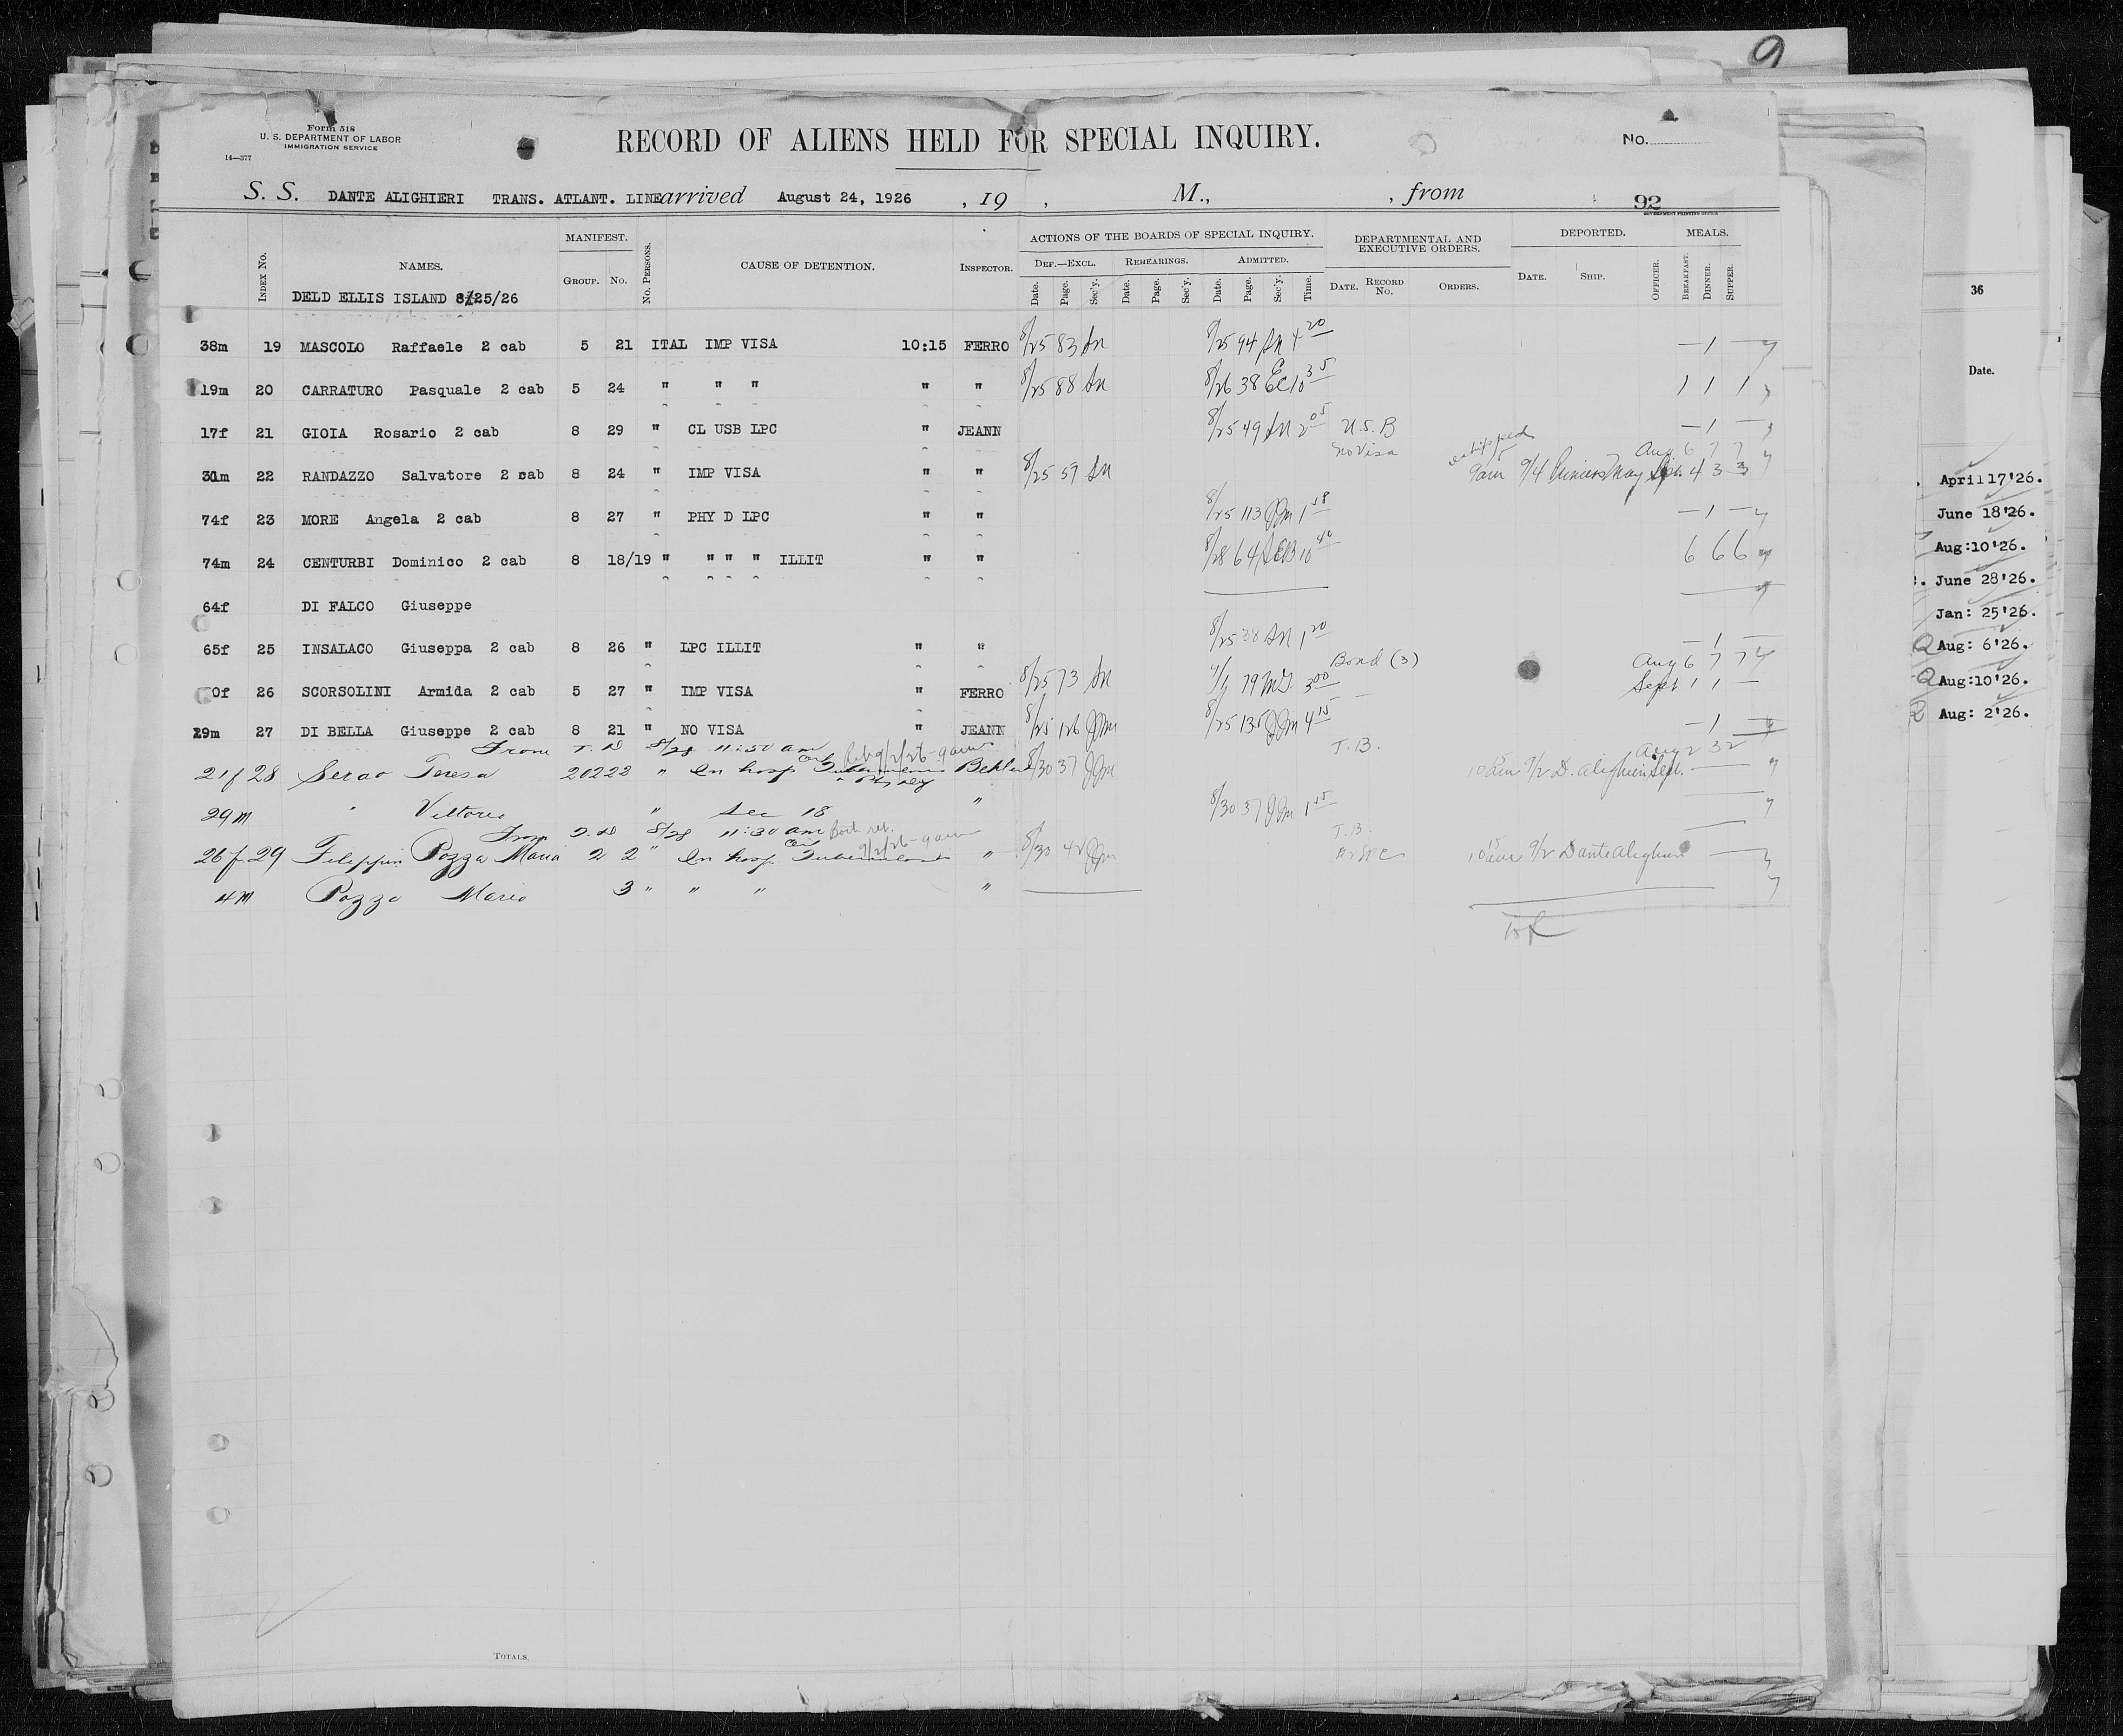 9
Form 518
U. S. DEPARTMENT OF LABOR
IMMIGRATION SERVICE
14—377
RECORD OF ALIENS HELD FOR SPECIAL INQUIRY.
No.
S. S. DANTE ALIGHIERI TRANS. ATLANT. LINE arrived August 24, 1926 , 19 , M., , from 92
GOVERNMENT PRINTING OFFICE
MANIFEST. ACTIONS OF THE BOARDS OF SPECIAL INQUIRY. DEPARTMENTAL AND EXECUTIVE ORDERS. DEPORTED. MEALS.
Index No. NAMES. Group. No. No. Persons. CAUSE OF DETENTION. Inspector. Def.—Excl. Rehearings. Admitted.
Date. Page. Sec'y. Date. Page. Sec'y. Date. Page. Sec'y. Time. Date. Record No. Orders. Date. Ship. Officer. Breakfast. Dinner. Supper.
DELD ELLIS ISLAND 8/25/26
38m 19 MASCOLO Raffaele 2 cab 5 21 ITAL IMP VISA 10:15 FERRO 8/25 83 SN 8/25 94 SN 4 20 — 1 —
19m 20 CARRATURO Pasquale 2 cab 5 24 " " " " " 8/25 88 SN 8/26 38 EC 10 35 1 1 1
17f 21 GIOIA Rosario 2 cab 8 29 " CL USB LPC " JEANN 8/25 49 SN 2 05 U.S.B — 1 —
31m 22 RANDAZZO Salvatore 2 cab 8 24 " IMP VISA " " 8/25 57 SN No Visa 9am 9/4 Aug 6 7 7
4 3 3
74f 23 MORE Angela 2 cab 8 27 " PHY D LPC " " 8/25 113 JJM 1 58 — 1 —
74m 24 CENTURBI Dominico 2 cab 8 18/19 " " " " ILLIT " " 8/28 64 10 40 6 6 6
64f DI FALCO Giuseppe
65f 25 INSALACO Giuseppa 2 cab 8 26 " LPC ILLIT " " 8/25 38 SN 1 20 — 1 —
0f 26 SCORSOLINI Armida 2 cab 5 27 " IMP VISA " FERRO 8/25 73 SN 9/1 79 3 00 Bond (3) Aug 6 7 7
Sept 1 1 —
29m 27 DI BELLA Giuseppe 2 cab 8 21 " NO VISA " JEANN 8/25 126 JJM 8/25 135 JJM 4 15 — 1 —
From T. D 8/28 11:50 am 9/2/26 - 9 am T.B. Aug 2 3 2
21f 28 Serao Teresa 20 22 23 " In hosp 8/30 37 JJM 10 am 9/2 D. Alighieri Sept.
29m " Vittorio " Sec 18 " 8/30 37 JJM 1 15
From T. D 8/28 11:30 am 9/2/26 - 9 am T.B.
26f 29 Filippin Pozza Maria 2 2 " In hosp " 8/30 42 JJM 10 am 9/2 Dante Alighieri
4m Pozza Mario 3 " " " "
Totals.
36
Date.
April 17'26.
June 18'26.
Aug:10'26.
June 28'26.
Jan: 25'26.
Aug: 6'26.
Aug:10'26.
Aug: 2'26.